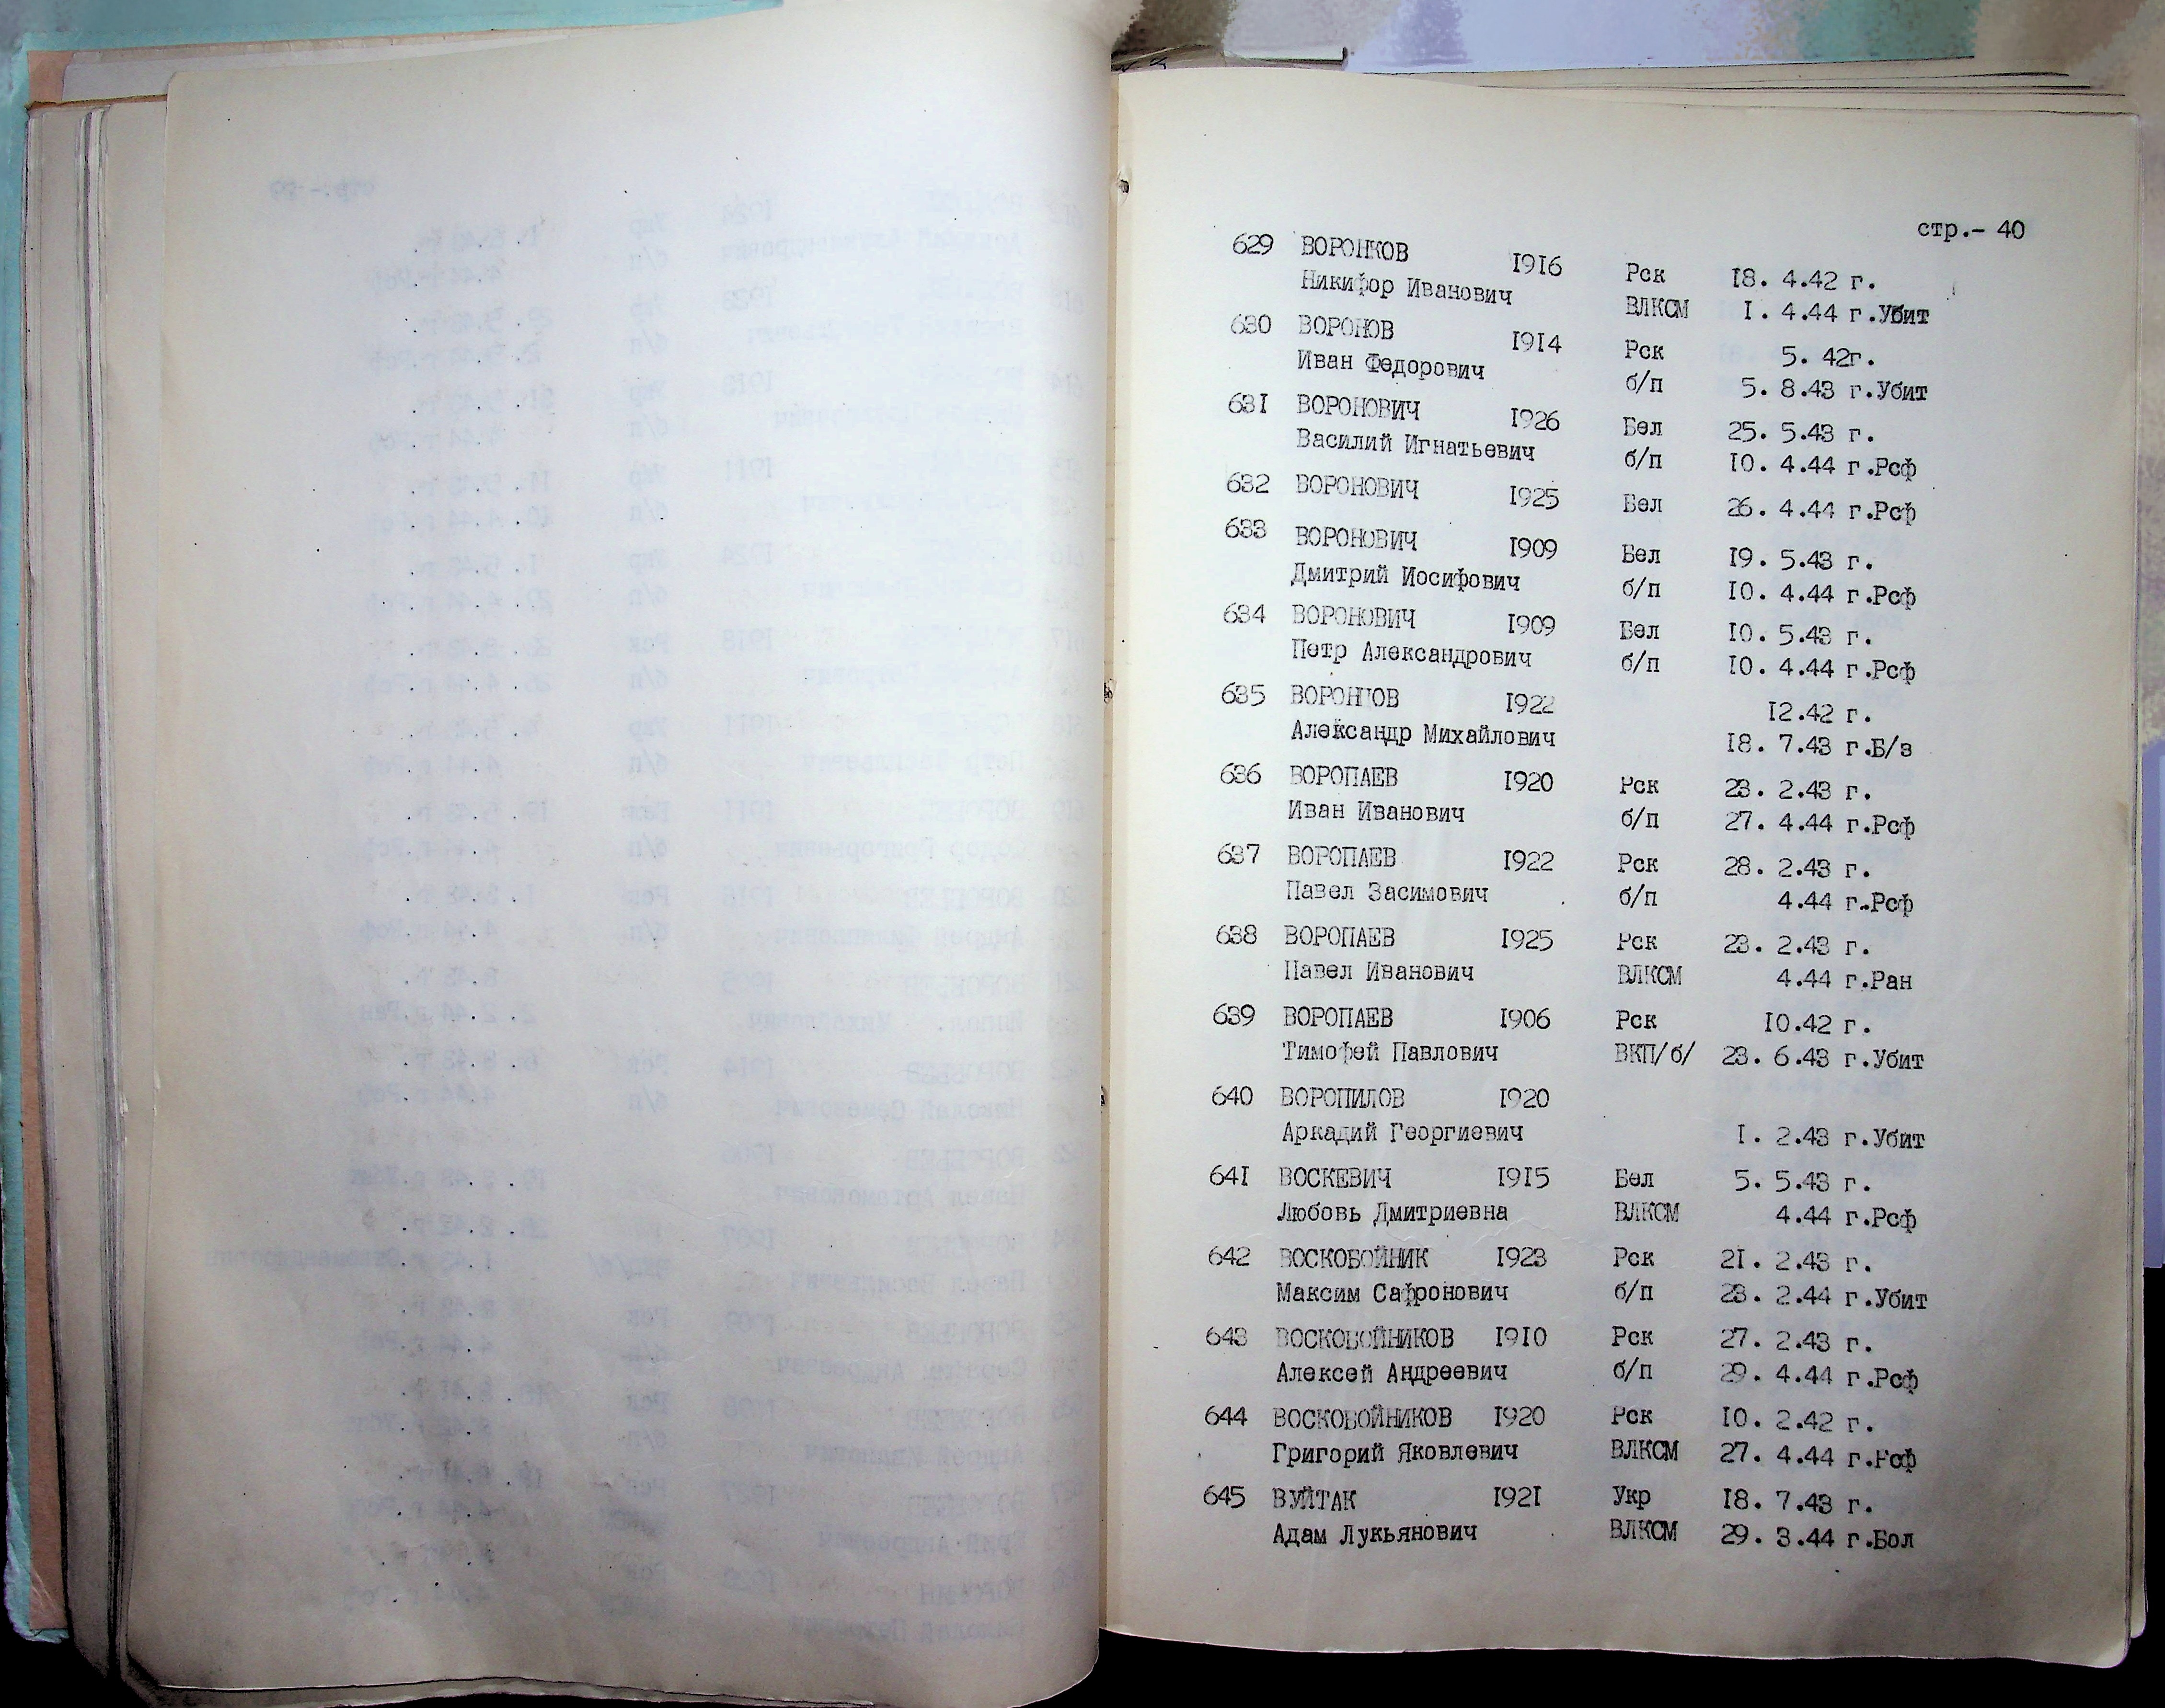 стр.- 40
629 ВОРОНКОВ 1916 Рск 18. 4.42 г.
Никифор Иванович ВЛКСМ 1. 4.44 г.Убит
630 ВОРОНОВ 1914 Рск 5. 42г.
Иван Федорович б/п 5. 8.43 г.Убит
631 ВОРОНОВИЧ 1926 Бел 25. 5.43 г.
Василий Игнатьевич б/п 10. 4.44 г.Рсф
632 ВОРОНОВИЧ 1925 Бел 26. 4.44 г.Рсф
633 ВОРОНОВИЧ 1909 Бел 19. 5.43 г.
Дмитрий Иосифович б/п 10. 4.44 г.Рсф
634 ВОРОНОВИЧ 1909 Бел 10. 5.43 г.
Петр Александрович б/п 10. 4.44 г.Рсф
635 1922 12.42 г.
Александр Михайлович 18. 7.43 г.Б/з
636 ВОРОПАЕВ 1920 Рск 23. 2.43 г.
Иван Иванович б/п 27. 4.44 г.Рсф
637 ВОРОПАЕВ 1922 Рск 28. 2.43 г.
Павел Засимович б/п 4.44 г.Рсф
638 ВОРОПАЕВ 1925 Рск 23. 2.43 г.
Павел Иванович ВЛКСМ 4.44 г.Ран
639 ВОРОПАЕВ 1906 Рск 10.42 г.
Тимофей Павлович ВКП/б/ 23. 6.43 г.Убит
640 ВОРОПИЛОВ 1920
Аркадий Георгиевич 1. 2.43 г.Убит
641 ВОСКЕВИЧ 1915 Бел 5. 5.43 г.
Любовь Дмитриевна ВЛКСМ 4.44 г.Рсф
642 ВОСКОБОЙНИК 1923 Рск 21. 2.43 г.
Максим Сафронович б/п 23. 2.44 г.Убит
643 ВОСКОБОЙНИКОВ 1910 Рск 27. 2.43 г.
Алексей Андреевич б/п 29. 4.44 г.Рсф
644 ВОСКОБОЙНИКОВ 1920 Рск 10. 2.42 г.
Григорий Яковлевич ВЛКСМ 27. 4.44 г.Рсф
645 ВУЙТАК 1921 Укр 18. 7.43 г.
Адам Лукьянович ВЛКСМ 29. 3.44 г.Бол